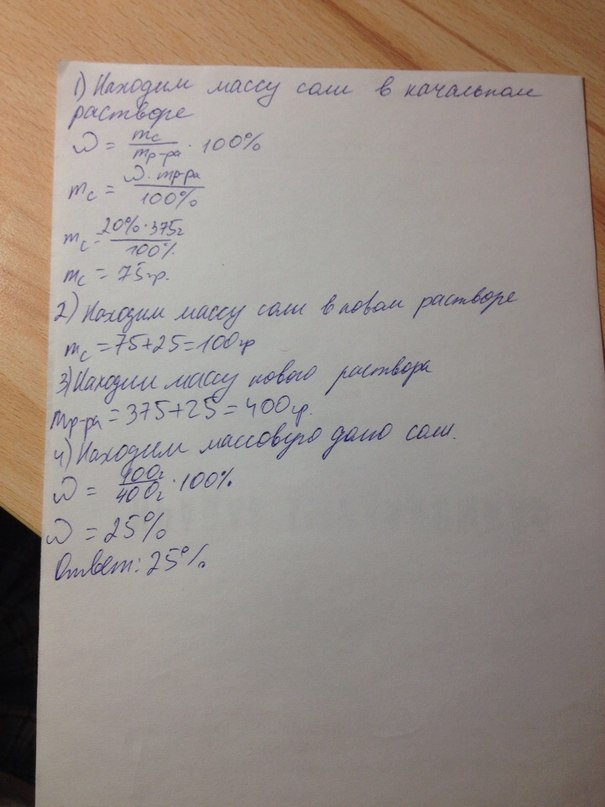 1) Находим массу соли в начальном
растворе
ω = mс/mр-ра · 100%
mс = ω · mр-ра/100%
mс = 20% · 375г/100%
mс = 75гр.
2) Находим массу соли в новом растворе
mс = 75+25=100гр
3) Находим массу нового раствора
mр-ра = 375+25=400гр.
4) Находим массовую долю соли.
ω = 100г/400г · 100%
ω = 25%
Ответ: 25%